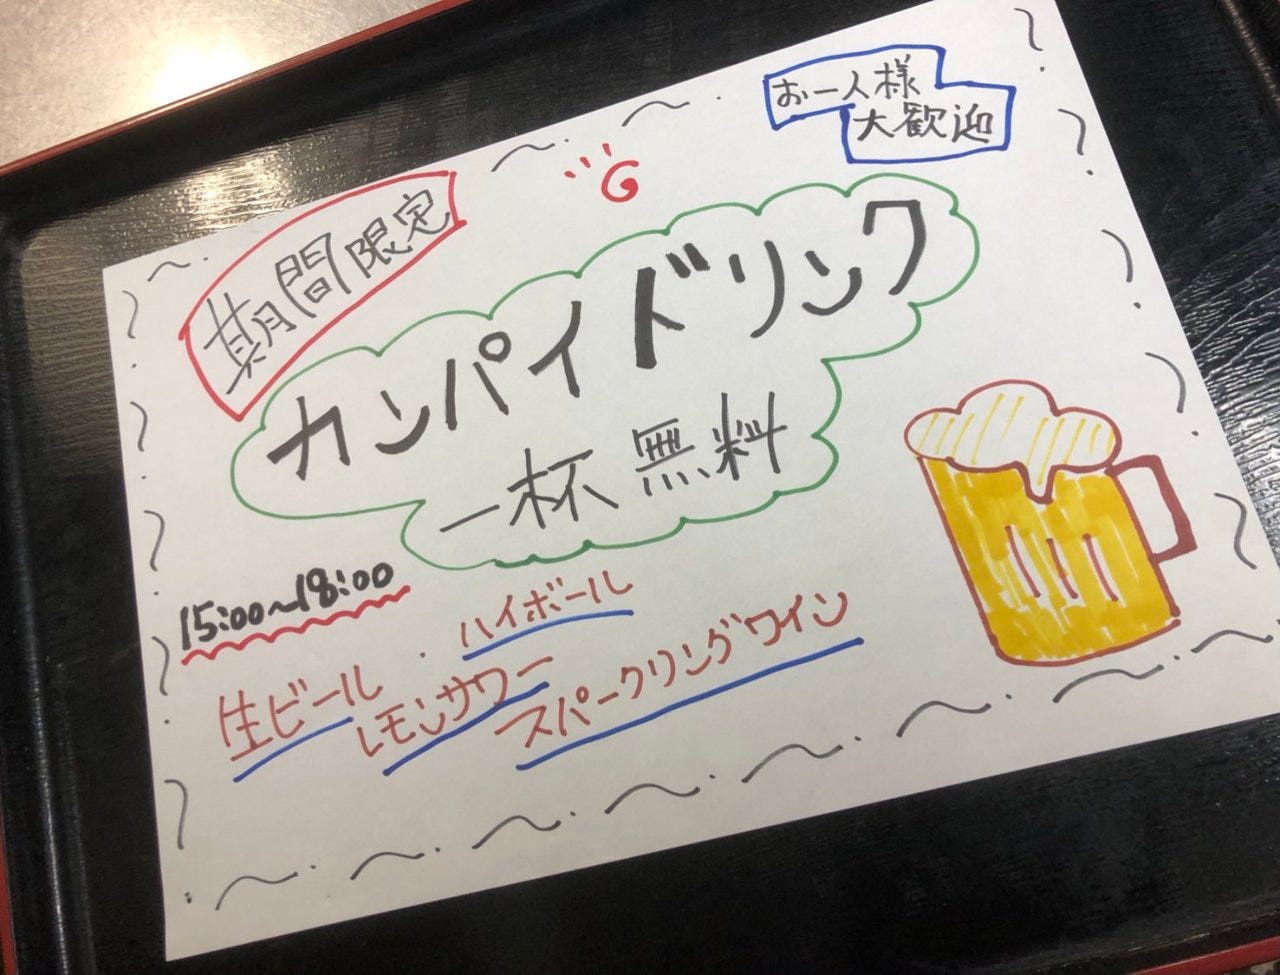 お一人様
大歓迎
期間限定
カンパイドリンク
一杯無料
15:00〜18:00
生ビール・ハイボール
レモンサワー
スパークリングワイン